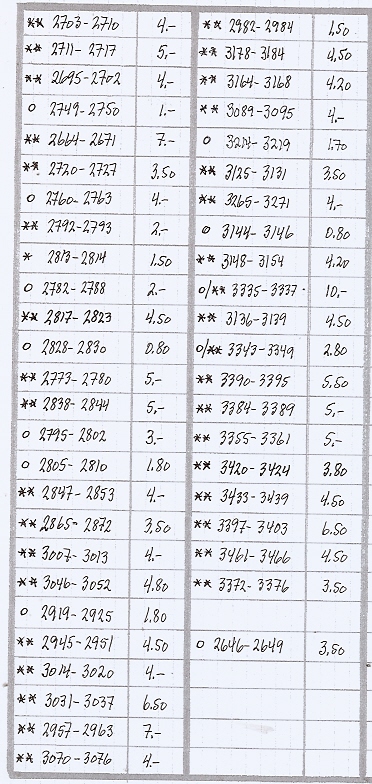 ** 2703-2710 4.-
** 2711-2717 5.-
** 2695-2702 4.-
o 2749-2750 1.-
** 2664-2671 7.-
** 2720-2727 3.50
o 2760-2763 4.-
** 2792-2793 2.-
* 2813-2814 1.50
o 2782-2788 2.-
** 2817-2823 4.50
o 2828-2830 0.80
** 2773-2780 5.-
** 2838-2844 5.-
o 2795-2802 3.-
o 2805-2810 1.80
** 2847-2853 4.-
** 2865-2872 3.50
** 3007-3013 4.-
** 3046-3052 4.80
o 2919-2925 1.80
** 2945-2951 4.50
** 3014-3020 4.-
** 3031-3037 6.50
** 2957-2963 7.-
** 3070-3076 4.-
** 2982-2984 1.50
** 3178-3184 4.50
** 3164-3168 4.20
** 3089-3095 4.-
o 3214-3219 1.70
** 3125-3131 3.50
** 3265-3271 4.-
o 3144-3146 0.80
** 3148-3154 4.20
o/** 3335-3337 10.-
** 3136-3139 4.50
o/** 3343-3349 2.80
** 3390-3395 5.50
** 3384-3389 5.-
** 3355-3361 5.-
** 3420-3424 3.80
** 3433-3439 4.50
** 3397-3403 6.50
** 3461-3466 4.50
** 3372-3376 3.50
o 2646-2649 3.50